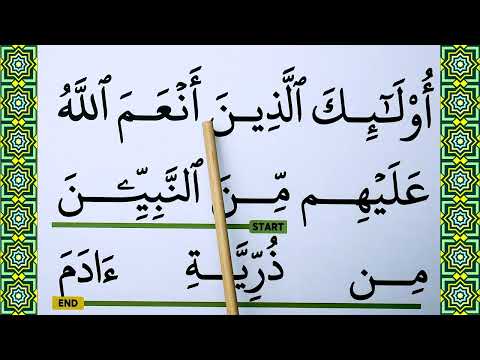 أُوْلَٰٓئِكَ ٱلَّذِينَ أَنْعَمَ ٱللَّهُ
عَلَيْهِم مِّنَ ٱلنَّبِيِّـۧنَ
START
مِن ذُرِّيَّةِ ءَادَمَ
END